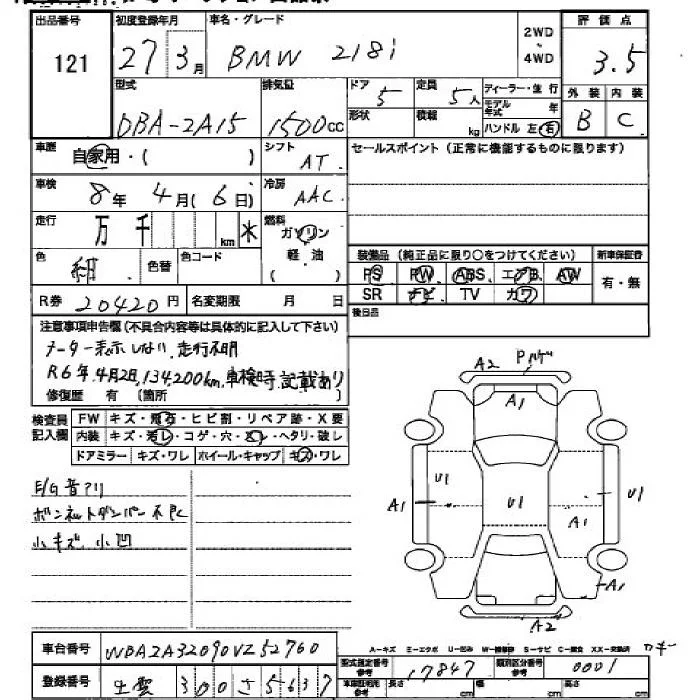 出品番号 初度登録年月 車名・グレード 2WD・4WD 評価点
121 27年3月 BMW 218i 3.5
型式 排気量 ドア 定員 ディーラー・並行 外装 内装
DBA-2A15 1500cc 5 5人 モデル年式 年 B C
形状 積載 kg ハンドル 左・右
車歴 自家用・( ) シフト AT セールスポイント(正常に機能するものに限ります)
車検 8年4月(6日) 冷房 AAC
走行 万 千 km 燃料 ガソリン
色 紺 色替 色コード 軽油 ( )
装備品(純正品に限り○をつけてください) 新車保証書
PS PW ABS エアB AW 有・無
SR ナビ TV カワ
R券 20420円 名変期限 月 日 後日品
注意事項申告欄(不具合内容等は具体的に記入して下さい)
メーター表示しない、走行不明
R6年4月2日,134,200km,車検時記載あり
修復歴 有(箇所 )
検査員記入欄 FW キズ・飛石・ヒビ割・リペア跡・X要
内装 キズ・汚レ・コゲ・穴・スレ・ヘタリ・破レ
ドアミラー キズ・ワレ ホイール・キャップ キズ・ワレ
A2 Pハゲ
A1
E/G音アリ
ボンネットダンパー不良
小キズ 小凹
U1 A1 U1 A1 U1
A1
A2
A-キズ E-エクボ U-凹ミ W-補修跡 S-サビ C-腐食 XX-交換済
車台番号 WBA2A32090VZ52760
型式指定番号 参考 17847 類別区分番号 参考 0001
登録番号 出雲 300 さ 5637
車庫証明用 参考 長さ cm 幅 cm 高さ cm